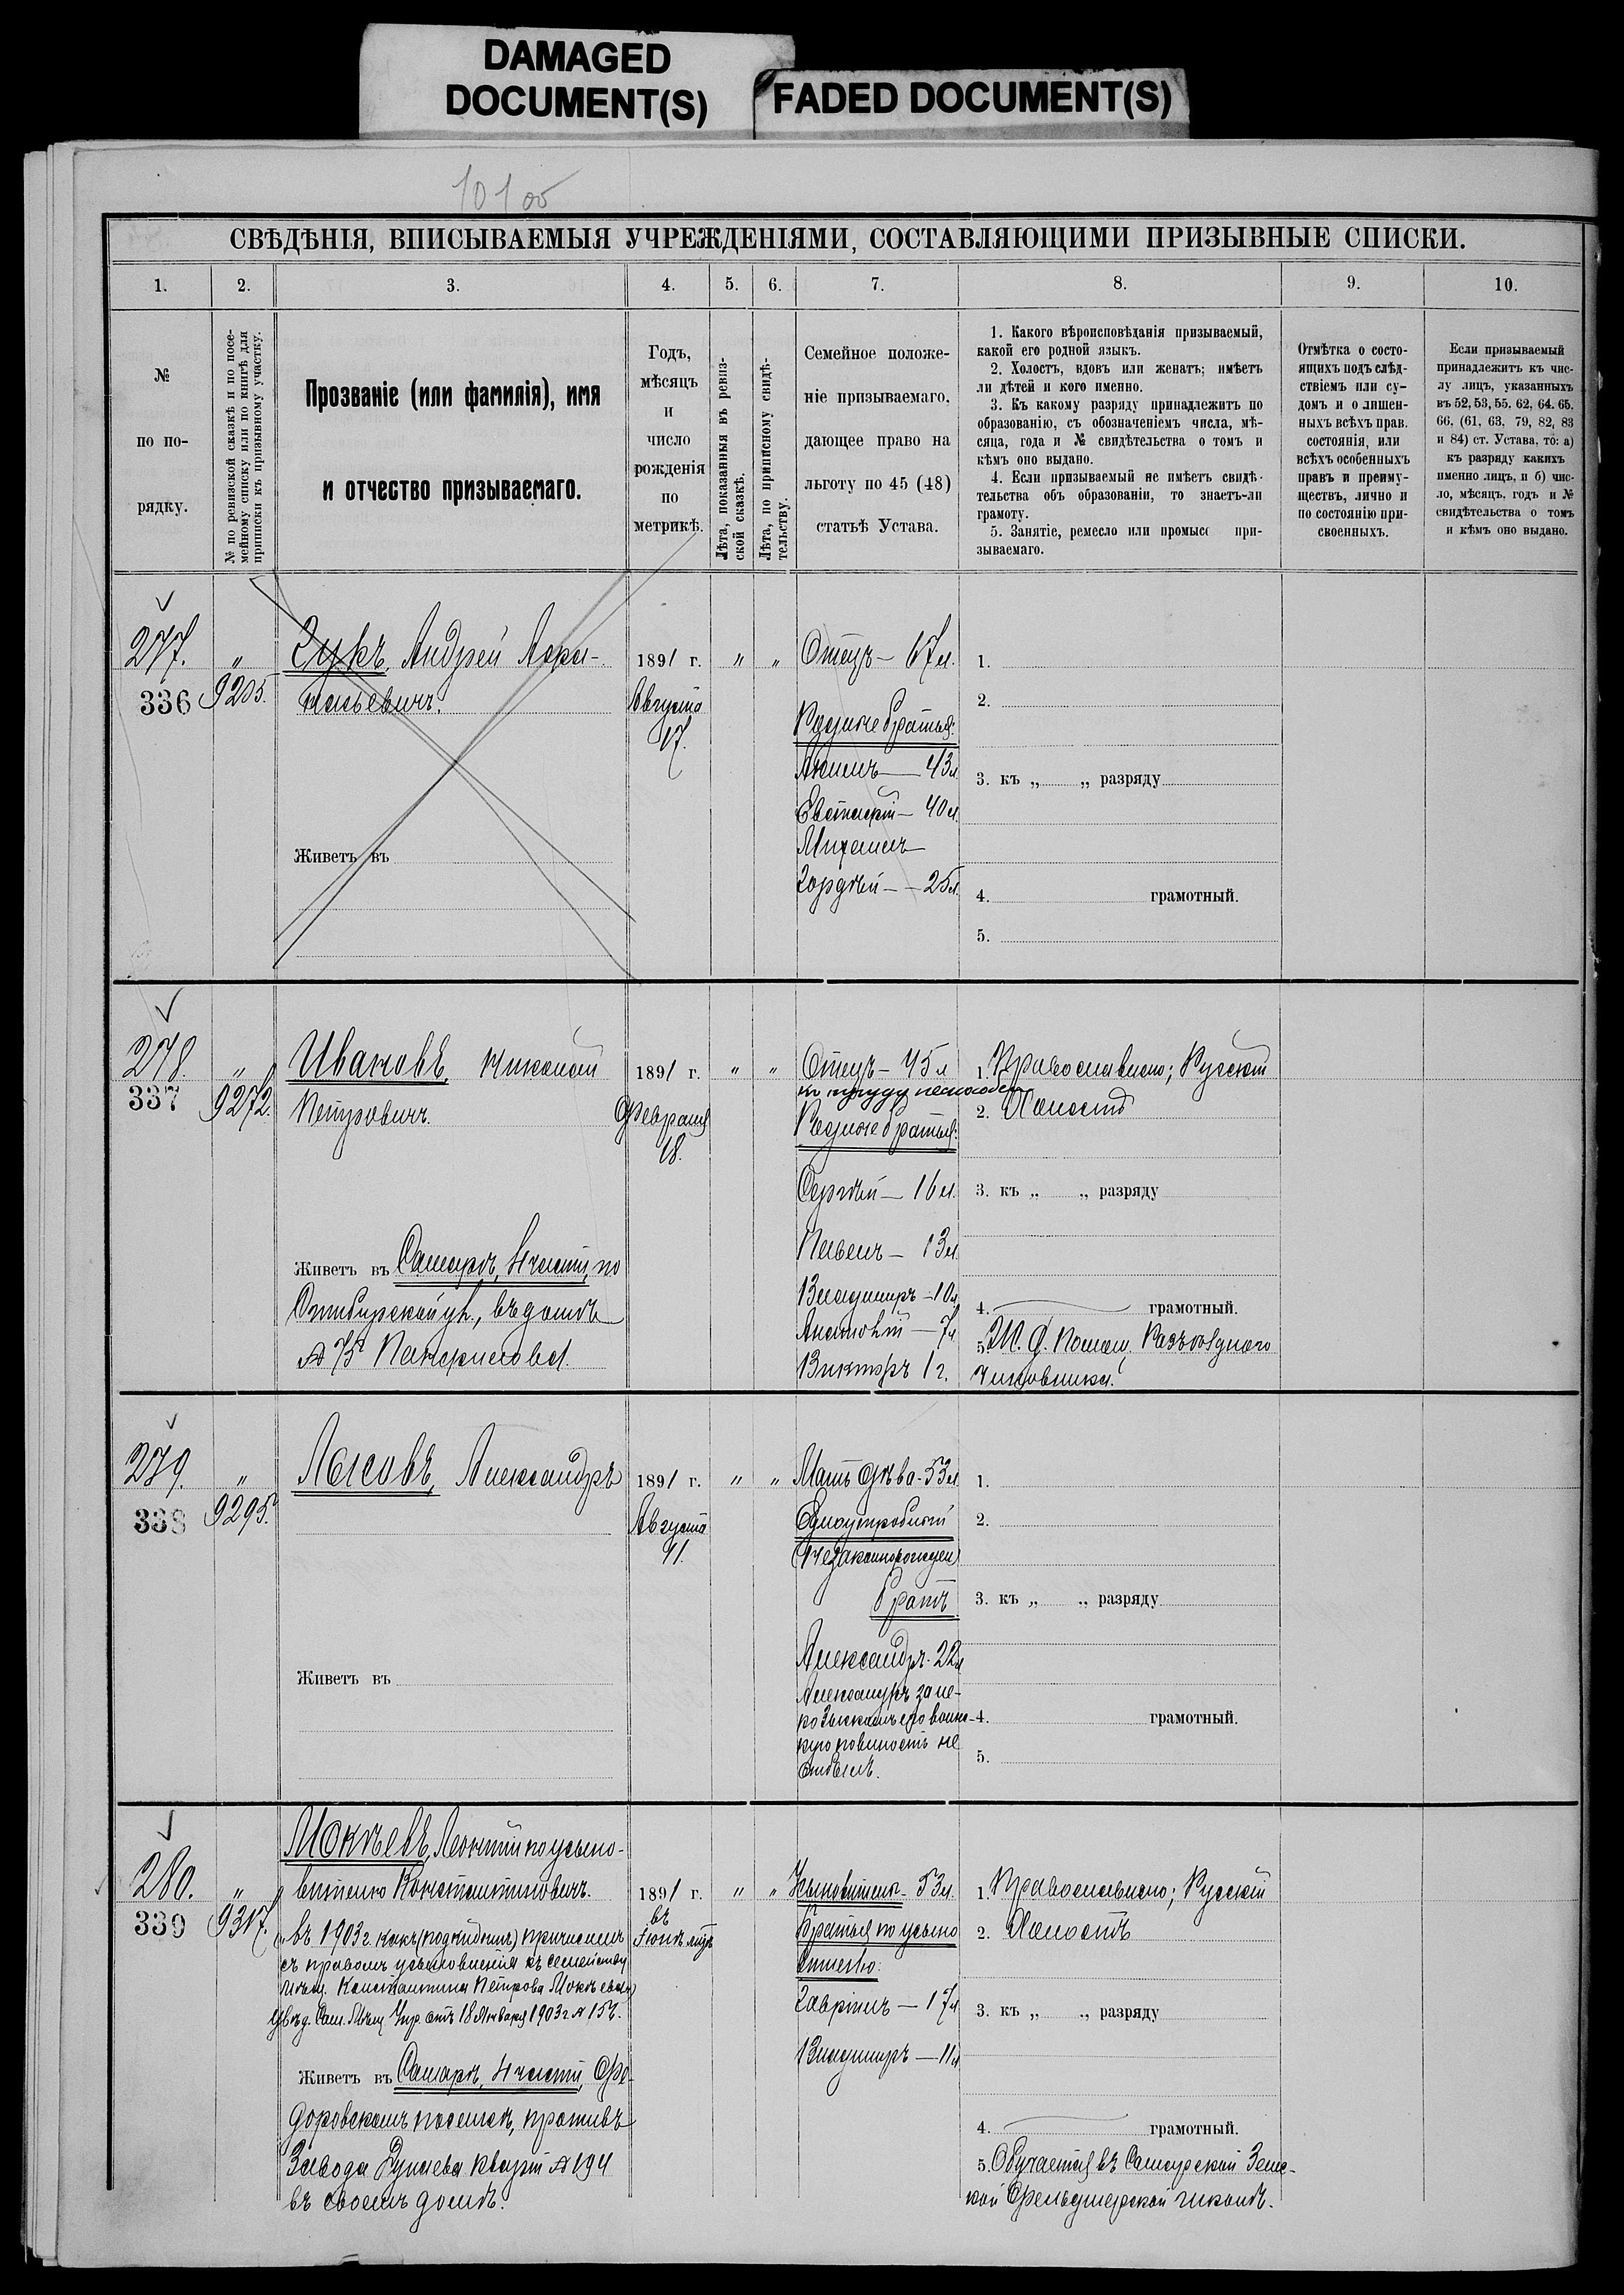 DAMAGED
DOCUMENT(S)
FADED DOCUMENT(S)
СВѢДѢНІЯ, ВПИСЫВАЕМЫЯ УЧРЕЖДЕНІЯМИ, СОСТАВЛЯЮЩИМИ ПРИЗЫВНЫЕ СПИСКИ.
1.
2.
3.
4.
5.
6.
7.
8.
9.
10.
№
по по-
рядку.
№ по ревизской сказкѣ и по посе-
мейному списку или по книгѣ для
приписки къ призывному участку.
Прозваніе (или фамилія), имя
и отчество призываемаго.
Годъ,
мѣсяцъ
и
число
рожденія
по
метрикѣ.
Лѣта, показанныя въ ревиз-
ской сказкѣ.
Лѣта, по приписному свидѣ-
тельству.
Семейное положе-
ніе призываемаго,
дающее право на
льготу по 45 (48)
статьѣ Устава.
1. Какого вѣроисповѣданія призываемый,
какой его родной языкъ.
2. Холостъ, вдовъ или женатъ; имѣетъ
ли дѣтей и кого именно.
3. Къ какому разряду принадлежитъ по
образованію, съ обозначеніемъ числа, мѣ-
сяца, года и № свидѣтельства о томъ и
кѣмъ оно выдано.
4. Если призываемый не имѣетъ свидѣ-
тельства объ образованіи, то знаетъ-ли
грамоту.
5. Занятіе, ремесло или промыс при-
зываемаго.
Отмѣтка о состо-
ящихъ подъ слѣд-
ствіемъ или су-
домъ и о лишен-
ныхъ всѣхъ прав.
состоянія, или
всѣхъ особенныхъ
правъ и преиму-
ществъ, лично и
по состоянію при-
своенныхъ.
Если призываемый
принадлежитъ къ чис-
лу лицъ, указанныхъ
въ 52, 53, 55. 62, 64. 65.
66, (61, 63, 79, 82, 83
и 84) ст. Устава, то: а)
къ разряду какихъ
именно лицъ, и б) чис-
ло, мѣсяцъ, годъ и №
свидѣтельства о томъ
и кѣмъ оно выдано.
277.
336
"
9205.
Зукъ, Андрей Афа-
насьевичъ.
Живетъ въ
1891 г.
Августа
17.
"
"
Отецъ — 67 л.
Родные братья:
43 л.
Евстафій — 40 л.
Михаилъ —
Гордѣй — 25 л.
1.
2.
3. къ „ „ разряду
4. грамотный.
5.
278.
337
"
9272.
Ивановъ, Николай
Петровичъ.
Живетъ въ Самарѣ, 4 части, по
Симбирской ул., въ домѣ
№ 75
1891 г.
Февраля
18.
"
"
Отецъ — 45 л
къ труду неспособен
Родные братья:
Сергѣй — 16 л.
Павелъ — 13 л.
Владиміръ — 10 л
Анатолій — 7 л
Викторъ 1 г.
1. Православное; Русскій
2. Холостъ
3. къ „ „ разряду
4. грамотный.
5. Разъѣзднаго
чиновника.
279.
338
"
9295.
Лысовъ, Александръ
Живетъ въ
1891 г.
Августа
"
"
Мать дѣва - 53 л.
Единоутробный
(незаконнорожден)
братъ
Александръ - 22 л
Александръ за не-
розыскомъ его воинс-
кую повинность не
отбылъ.
1.
2.
3. къ „ „ разряду
4. грамотный.
5.
280.
339
"
9317.
Мокѣевъ, Леонтій по усыно-
вленію Константиновичъ.
въ 1903 г. какъ (подкидышъ) причисленъ
съ правомъ усыновленія къ семейству
мѣщ. Константина Петрова Мокѣева
Увѣд. Сам. Мѣщ. Упр. отъ 18 Января 1903 г. № 157.
Живетъ въ Самарѣ, 4 части, Фе-
доровскомъ поселкѣ, противъ
Завода №194
въ своемъ домѣ.
1891 г.
въ
Іюнѣ мцѣ
"
"
Усыновитель - 53 л.
братья по усыно
вленію:
Гавріилъ — 17 л
Владиміръ — 11 л
1. Православное; Русскій
2. Холостъ
3. къ „ „ разряду
4. грамотный.
5. Обучается въ Самарской Земс-
кой Фельдшерской школѣ.